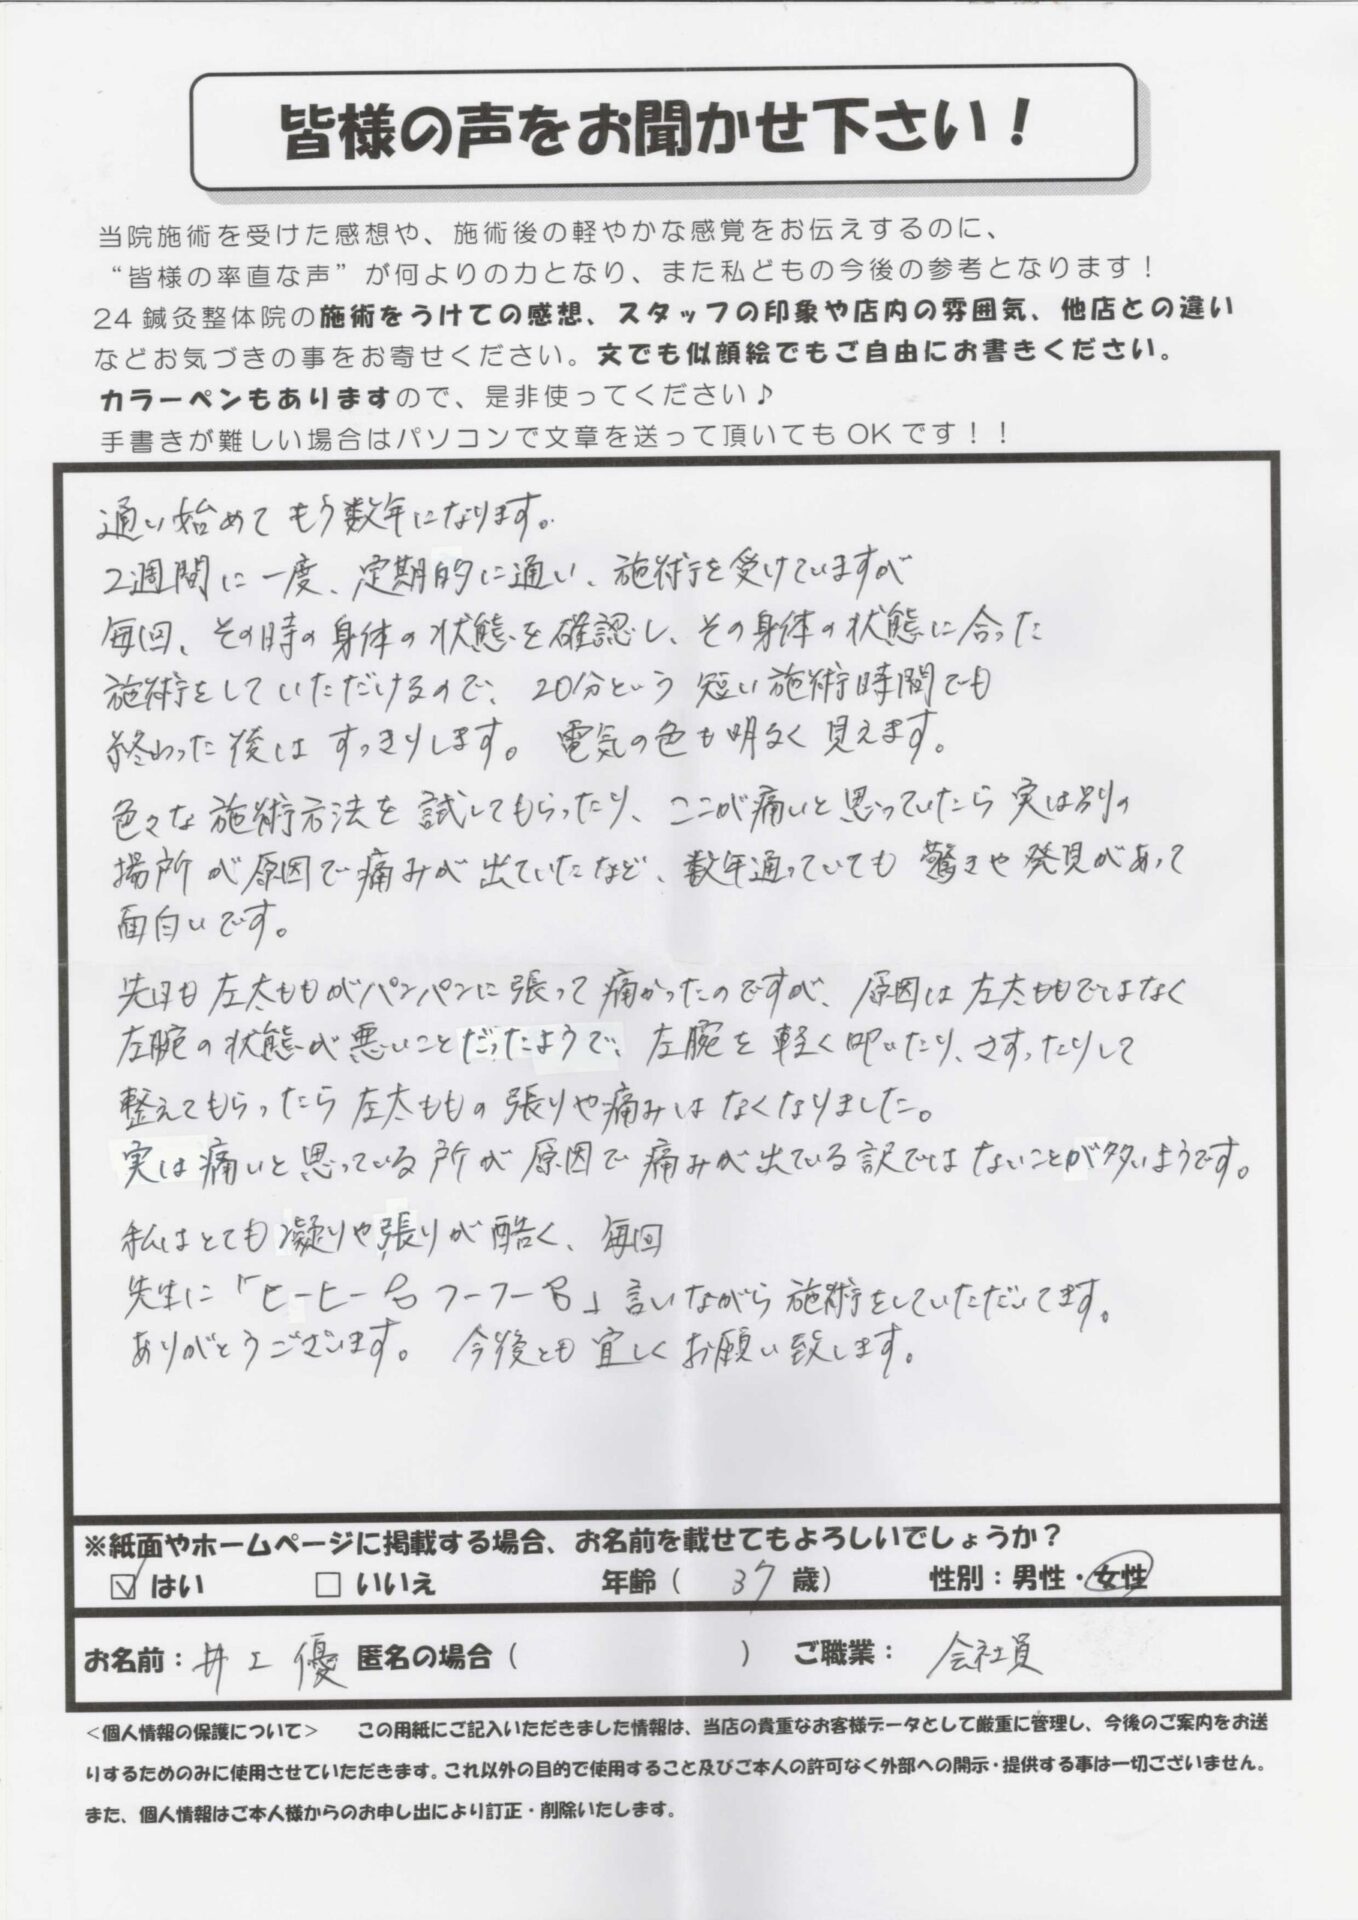 皆様の声をお聞かせ下さい！
当院施術を受けた感想や、施術後の軽やかな感覚をお伝えするのに、
“皆様の率直な声”が何よりの力となり、また私どもの今後の参考となります！
24鍼灸整体院の施術をうけての感想、スタッフの印象や店内の雰囲気、他店との違い
などお気づきの事をお寄せください。文でも似顔絵でもご自由にお書きください。
カラーペンもありますので、是非使ってください♪
手書きが難しい場合はパソコンで文章を送って頂いてもOKです！！
通い始めてもう数年になります。
2週間に一度、定期的に通い、施術を受けていますが
毎回、その時の身体の状態を確認し、その身体の状態に合った
施術をしていただけるので、20分という短い施術時間でも
終わった後はすっきりします。電気の色も明るく見えます。
色々な施術方法を試してもらったり、ここが痛いと思っていたら実は別の
場所が原因で痛みが出ていたなど、数年通っていても驚きや発見があって
面白いです。
先日も左太ももがパンパンに張って痛かったのですが、原因は左太ももではなく
左腕の状態が悪いことだったようで、左腕を軽く叩いたり、さすったりして
整えてもらったら左太ももの張りや痛みはなくなりました。
実は痛いと思っている所が原因で痛みが出ている訳ではないことが多いようです。
私はとても凝りや張りが酷く、毎回
先生に「ヒーヒー言フーフー言」言いながら施術をしていただいてます。
ありがとうございます。今後とも宜しくお願い致します。
※紙面やホームページに掲載する場合、お名前を載せてもよろしいでしょうか？
☑ はい □ いいえ 年齢（ 37 歳） 性別：男性・女性
お名前：井上 優 匿名の場合（ ） ご職業： 会社員
＜個人情報の保護について＞ この用紙にご記入いただきました情報は、当店の貴重なお客様データとして厳重に管理し、今後のご案内をお送
りするためのみに使用させていただきます。これ以外の目的で使用すること及びご本人の許可なく外部への開示・提供する事は一切ございません。
また、個人情報はご本人様からのお申し出により訂正・削除いたします。